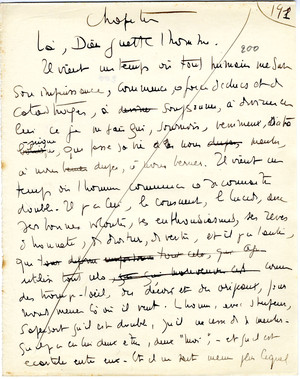 Chapitre
191
Là, Dieu guette l'homme.
200
Il vient un temps où tout humain me dans
son impuissance, commence à force d'échecs et de
catastrophes, à soupçonner, à deviner en
lui ce je ne sais qui, sournois, venimeux,
cynique, qui passe sa vie à nous mentir,
à nous duper, à nous berner. Il vient un
temps où l'homme commence à se connaître
double. Il y a lui, le conscient, le lucide, avec
ses bonnes volontés, ses enthousiasmes, ses rêves
d'honnêteté, de droiture, de vérité, et il y a l'autre,
qui
utilise tout cela, comme
des trompe-l'œil, des décors et des oripeaux, pour
nous mener là où il veut. L'homme, avec stupeur,
s'aperçoit qu'il est double, qu'il ne cesse de se mentir.
Qu'il y a en lui deux êtres, deux "moi", et qu'il est
écartelé entre eux. Et il ne sait même plus lequel